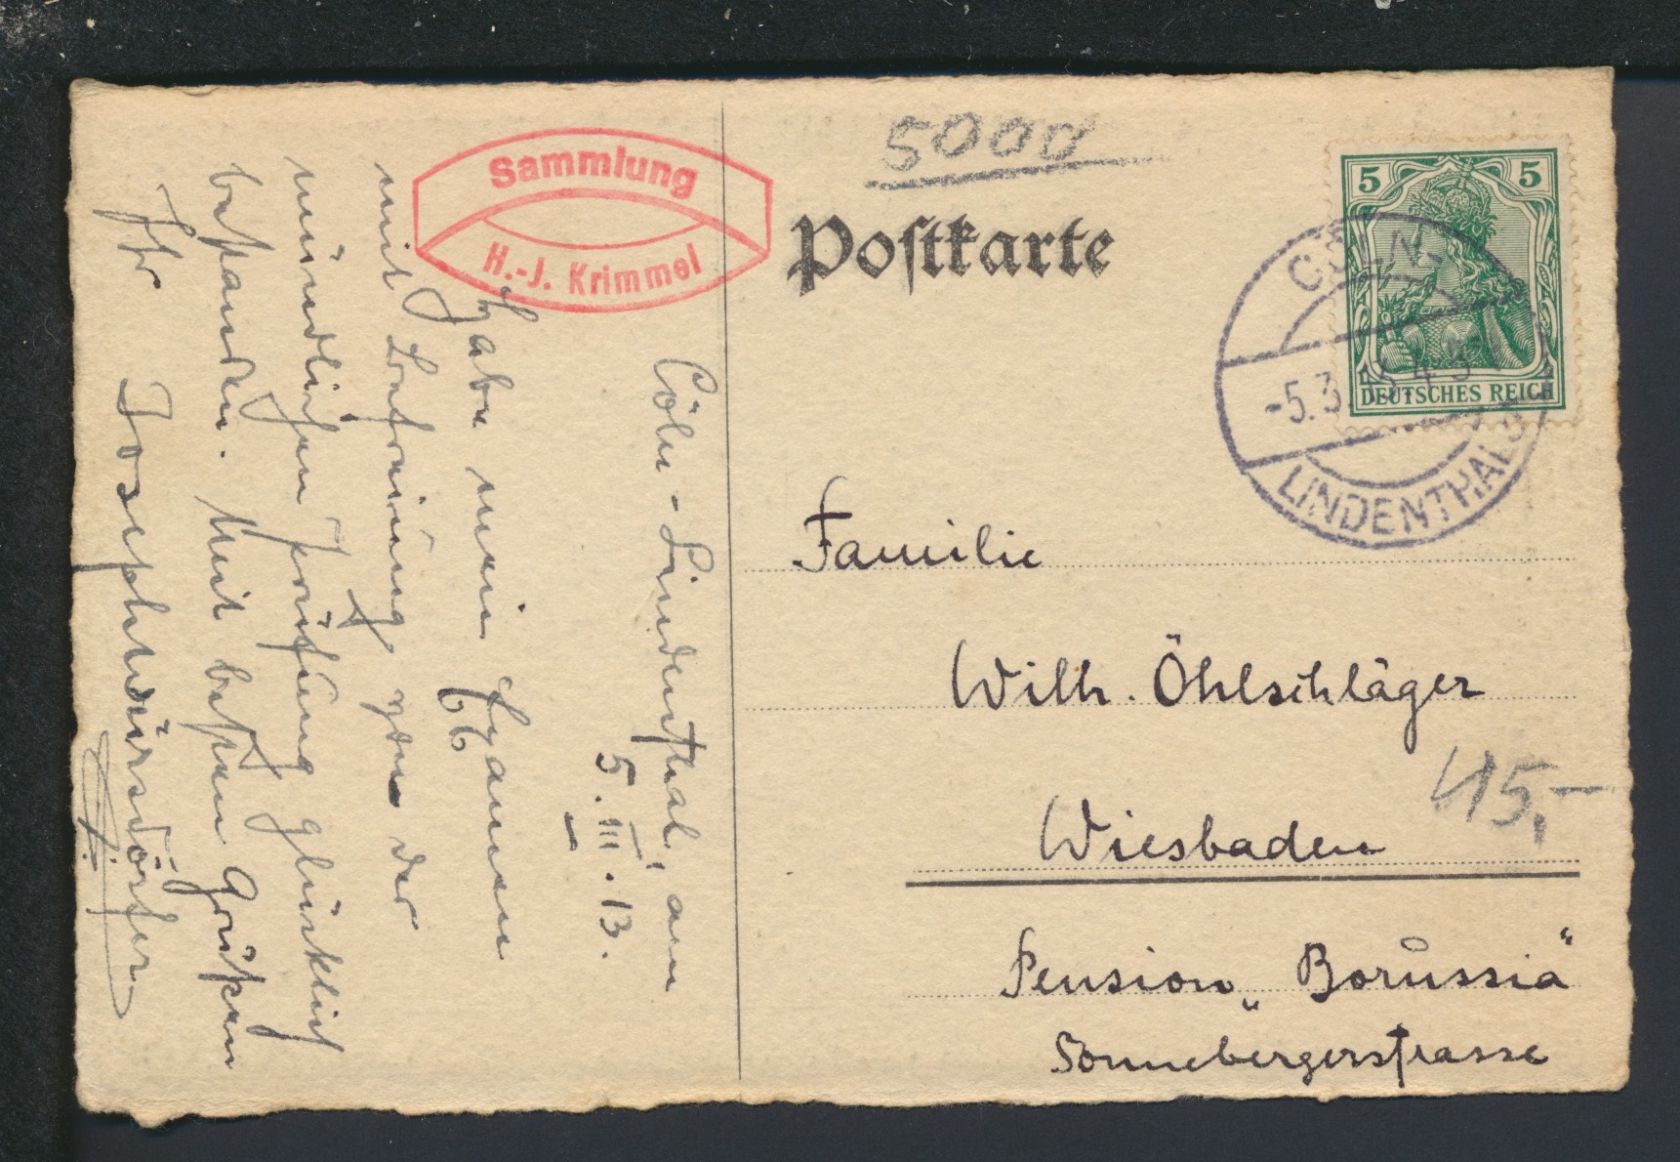 Sammlung
H.-J. Krimmel
Cöln-Lindenthal, am
5. III. 13.
Habe mein Examen
mit Befreiung von der
mündlichen Prüfung glücklich
bestanden. Mit besten Grüßen
Ihr Joseph
5000
Postkarte
5 5
DEUTSCHES REICH
CÖLN-
-5.3.13.
LINDENTHAL
Familie
Wilh. Öhlschläger
Wiesbaden
45,-
Pension „Borussia"
Sonnebergerstrasse